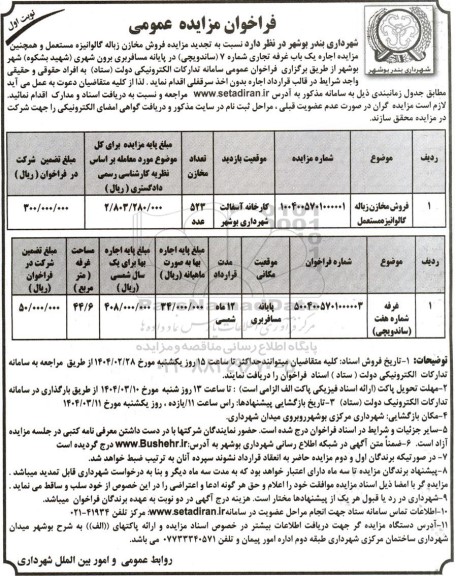 نوبت اول
فراخوان مزایده عمومی
شهرداری بندر بوشهر
شهرداری بندر بوشهر در نظر دارد نسبت به تجدید مزایده فروش مخازن زباله گالوانیزه مستعمل و همچنین
مزایده اجاره یک باب غرفه تجاری شماره ۷ (ساندویچی) در پایانه مسافربری برون شهری (شهید بشکوه) شهر
بوشهر از طریق برگزاری فراخوان عمومی سامانه تدارکات الکترونیکی دولت (ستاد) به افراد حقوقی و حقیقی
واجد شرایط در قالب قرارداد اجاره بدون اخذ سرقفلی اقدام نماید. لذا از کلیه متقاضیان دعوت به عمل می آید
مطابق جدول زمانبندی ذیل به سامانه مذکور به آدرس www.setadiran.ir مراجعه و نسبت به دریافت اسناد و مدارک اقدام نمائید.
لازم است مزایده گران در صورت عدم عضویت قبلی ، مراحل ثبت نام در سایت مذکور و دریافت گواهی امضای الکترونیکی را جهت شرکت
در مزایده محقق سازند.
ردیف موضوع شماره مزایده موقعیت بازدید تعداد مخازن مبلغ پایه مزایده برای کل موضوع مورد معامله بر اساس نظریه کارشناسی رسمی دادگستری (ریال) مبلغ تضمین شرکت در فراخوان (ریال)
۱ فروش مخازن زباله گالوانیزه مستعمل ۱۰۰۴۰۰۵۷۰۱۰۰۰۰۰۱ کارخانه آسفالت شهرداری بوشهر ۵۲۳ عدد ۲/۸۰۳/۲۸۰/۰۰۰ ۳۰۰/۰۰۰/۰۰۰
ردیف موضوع شماره فراخوان موقعیت مکانی مدت قرارداد مبلغ پایه اجاره بها به صورت ماهیانه (ریال) مبلغ پایه اجاره بها برای یک سال شمسی (ریال) مساحت غرفه (متر مربع) مبلغ تضمین شرکت در فراخوان (ریال)
۱ غرفه شماره هفت (ساندویچی) ۵۰۰۴۰۰۵۷۰۱۰۰۰۰۰۳ پایانه مسافربری ۱۲ ماه شمسی ۳۴/۰۰۰/۰۰۰ ۴۰۸/۰۰۰/۰۰۰ ۴۴/۶ ۵۰/۰۰۰/۰۰۰
توضیحات: ۱-تاریخ فروش اسناد: کلیه متقاضیان میتوانند حداکثر تا ساعت ۱۵ روز یکشنبه مورخ ۱۴۰۴/۰۲/۲۸ از طریق مراجعه به سامانه
تدارکات الکترونیکی دولت (ستاد) اسناد فراخوان را دریافت نمایند.
۲-مهلت تحویل پاکت (ارائه اسناد فیزیکی پاکت الف الزامی است) : تا ساعت ۱۳ روز شنبه مورخ ۱۴۰۴/۰۳/۱۰ از طریق بارگذاری در سامانه
تدارکات الکترونیک دولت (ستاد) ۳-تاریخ بازگشایی پیشنهادها: راس ساعت ۱۱/یازده ، روز یکشنبه مورخ ۱۴۰۴/۰۳/۱۱
۴-مکان بازگشایی: شهرداری مرکزی بوشهر روبروی میدان شهرداری.
۵-سایر جزئیات و شرایط در اسناد فراخوان درج شده است. حضور نمایندگان شرکتها با در دست داشتن معرفی نامه کتبی در جلسه مزایده
آزاد است. ۶-ضمناً متن آگهی در شبکه اطلاع رسانی شهرداری بوشهر به آدرس: www.Bushehr.ir درج گردیده است
۷- در صورتیکه برندگان اول و دوم مزایده حاضر به انعقاد قرارداد نشوند سپرده آنان به ترتیب ضبط خواهد شد.
۸-پیشنهاد برندگان مزایده تا سه ماه دارای اعتبار خواهد بود که به مدت سه ماه دیگر و بنا به درخواست شهرداری قابل تمدید میباشد .
مزایده گر با امضا ذیل اسناد مزایده موافقت خود را اعلام و حق هر گونه ادعا و اعتراضی را در این خصوص از خود سلب و ساقط می نماید .
۹-شهرداری در رد یا قبول هر یک از پیشنهادها مختار است. هزینه درج آگهی در دو نوبت به عهده برندگان فراخوان میباشد.
۱۰-اطلاعات تماس سامانه ستاد جهت انجام مراحل عضویت در سامانه www.setadiran.ir: مرکز تلفن ۴۱۹۳۴-۰۲۱
۱۱-آدرس دستگاه مزایده گر جهت دریافت اطلاعات بیشتر در خصوص اسناد مزایده و ارائه پاکتهای ((الف)) به شرح بوشهر میدان
شهرداری ساختمان شهرداری مرکزی طبقه دوم اداره امور پیمان و تلفن ۰۷۷۳۳۳۴۰۵۷۱ می باشد.
روابط عمومی و امور بین الملل شهرداری